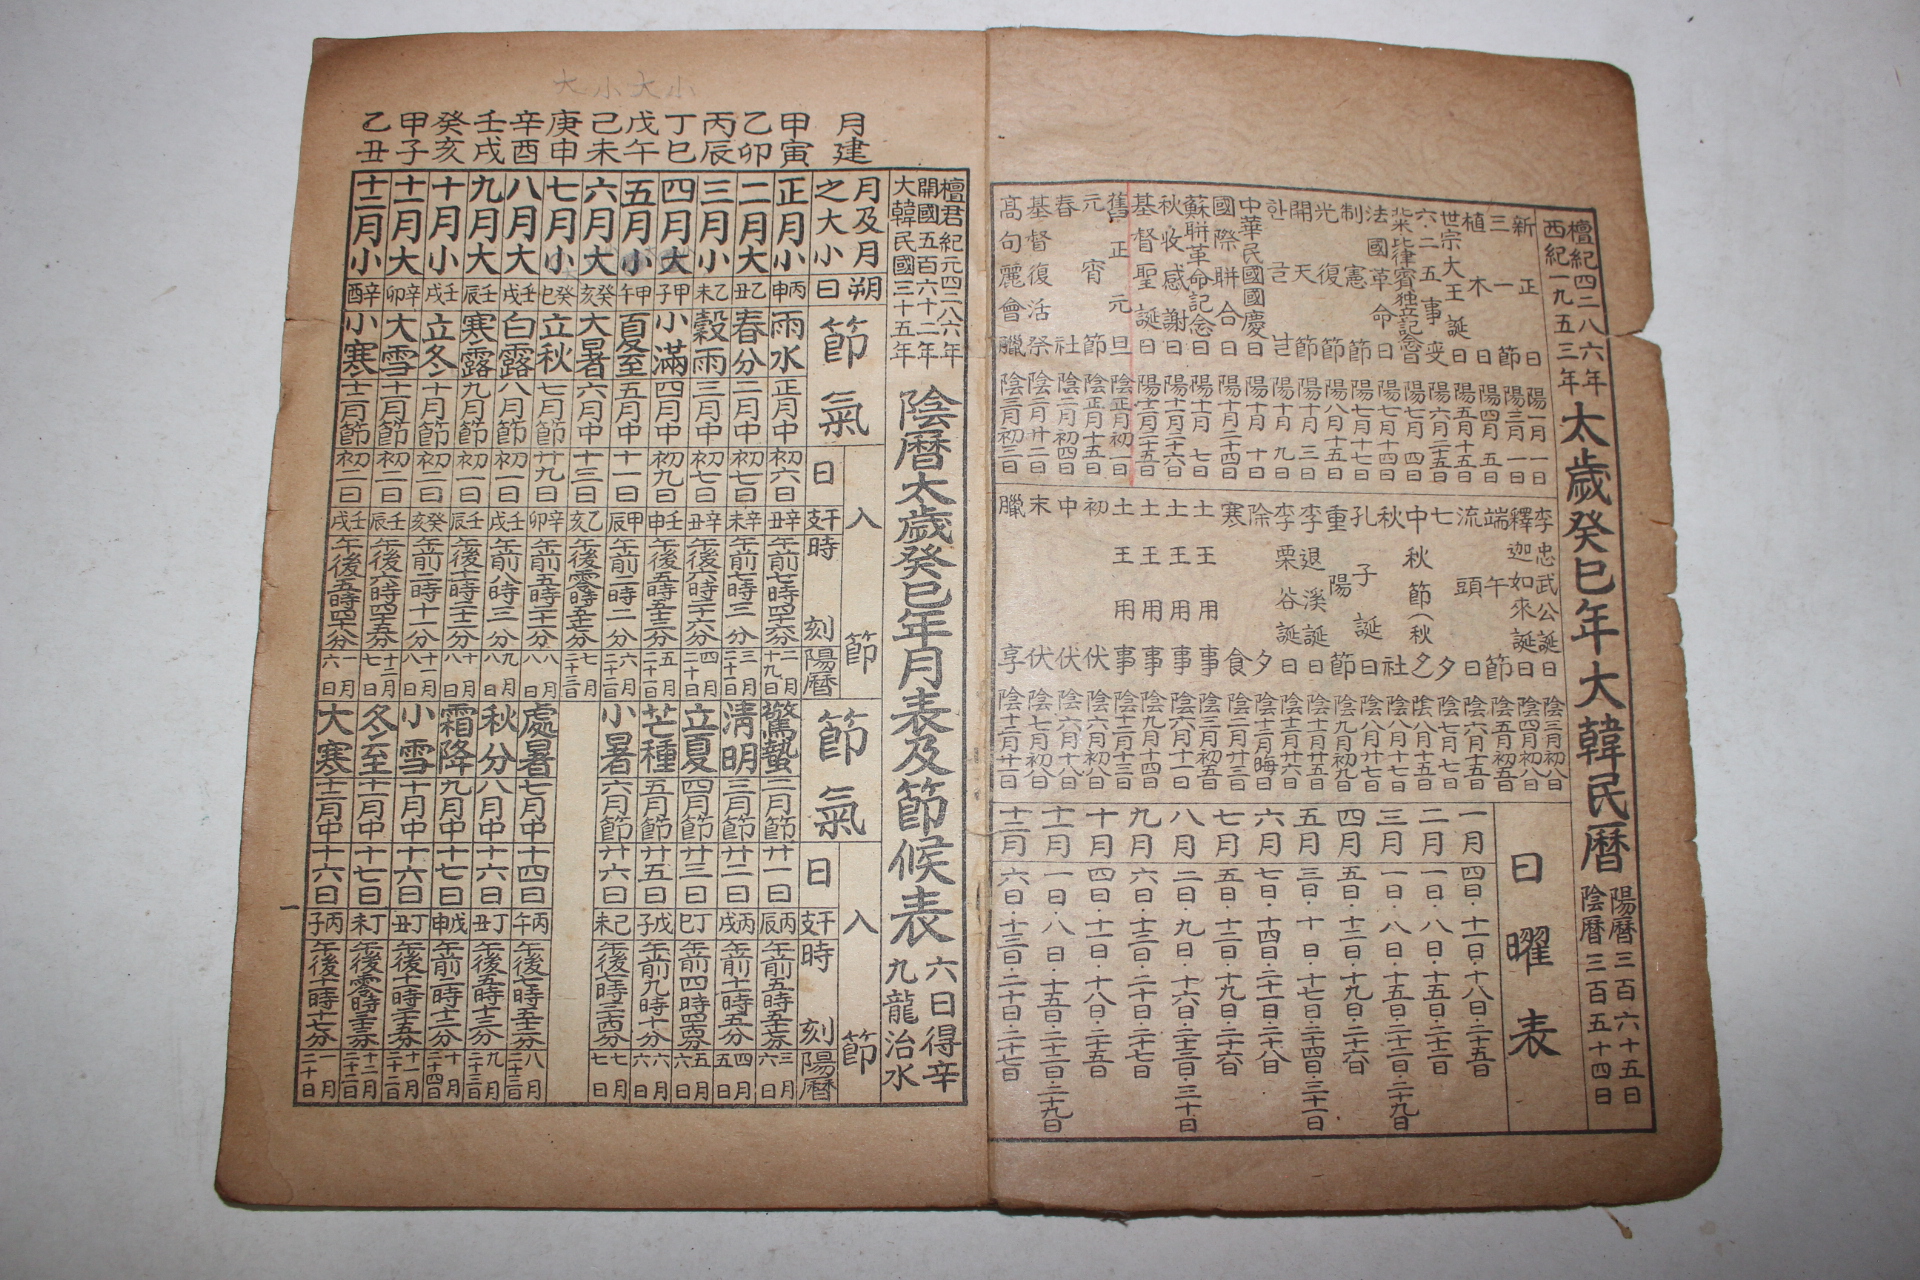 檀紀四二八六年
西紀一九五三年
太歲癸巳年大韓民曆
陽曆三百六十五日
陰曆三百五十四日
新正日 陽一月一日
三一節 陽三月一日
植木日 陽四月五日
世宗大王誕日 陽五月十五日
六·二五事変 陽六月二五日
陽七月四日
法國革命日 陽七月十四日
制憲節 陽七月十七日
光復節 陽八月十五日
開天節 陽十月三日
한글날 陽十月九日
中華民國國慶日 陽十月十日
國際聯合日 陽十月二十四日
蘇聯革命記念日 陽十一月七日
秋收感謝日 陽十一月二十六日
基督聖誕日 陽十二月二十五日
舊正元旦 陰正月初一日
元宵節 陰正月十五日
春社 陰二月初四日
基督復活祭 陰二月廿二日
高句麗會臘 陰三月初三日
李忠武公誕日 陰三月初八日
釋迦如來誕日 陰四月初八日
端午節 陰五月初五日
流頭日 陰六月十五日
七夕 陰七月七日
中秋節(秋夕) 陰八月十五日
秋社 陰八月十七日
孔子誕日 陰八月廿七日
重陽節 陰九月初九日
李退溪誕日 陰十一月廿五日
李栗谷誕日 陰十二月廿六日
除夕 陰十二月晦日
寒食 陰二月廿三日
土王用事 陰三月初五日
土王用事 陰六月十一日
土王用事 陰九月十四日
土王用事 陰十二月十三日
初伏 陰六月初八日
中伏 陰六月十八日
末伏 陰七月初八日
臘享 陰十二月廿一日
日曜表
一月 四日·十一日·十八日·二十五日
二月 一日·八日·十五日·二十二日
三月 一日·八日·十五日·二十二日·二十九日
四月 五日·十二日·十九日·二十六日
五月 三日·十日·十七日·二十四日·三十一日
六月 七日·十四日·二十一日·二十八日
七月 五日·十二日·十九日·二十六日
八月 二日·九日·十六日·二十三日·三十日
九月 六日·十三日·二十日·二十七日
十月 四日·十一日·十八日·二十五日
十一月 一日·八日·十五日·二十二日·二十九日
十二月 六日·十三日·二十日·二十七日
檀君紀元四二八六年
開國五百六十二年
大韓民國三十五年
陰曆太歲癸巳年月表及節候表
六日得辛
九龍治水
月建
月及月之大小 朔日 節氣 入節 日 干支 時刻 陽曆 節氣 入節 日 干支 時刻 陽曆
甲寅 正月小 丙申 雨水 正月中 初六日 辛丑 午前七時四十六分 二月十九日 驚蟄 二月節 廿一日 丙辰 午前五時五十七分 三月六日
乙卯 二月大 乙丑 春分 二月中 初七日 辛未 午前七時三分 三月二十一日 淸明 三月節 廿二日 丙戌 午前十一時五分 四月五日
丙辰 三月小 乙未 穀雨 三月中 初七日 辛丑 午後六時二十六分 四月二十日 立夏 四月節 廿三日 丁巳 午前四時四十五分 五月六日
丁巳 四月大 甲子 小滿 四月中 初九日 壬申 午後五時五十三分 五月二十一日 芒種 五月節 廿五日 戊子 午前九時十分 六月六日
戊午 五月小 甲午 夏至 五月中 十一日 甲辰 午前二時一分 六月二十二日 小暑 六月節 廿六日 己未 午後七時三十四分 七月七日
己未 六月大 癸亥 大暑 六月中 十三日 乙亥 午後零時五十七分 七月二十三日
庚申 七月小 癸巳 立秋 七月節 廿九日 辛卯 午前五時二十分 八月八日
辛酉 八月大 壬戌 白露 八月節 初一日 壬戌 午前八時三分 九月八日 處暑 七月中 十四日 丙午 午後七時五十三分 八月二十三日
壬戌 九月大 壬辰 寒露 九月節 初一日 壬辰 午後十一時二十三分 十月八日 秋分 八月中 十六日 丁丑 午後五時十三分 九月二十三日
癸亥 十月小 壬戌 立冬 十月節 初二日 癸亥 午前二時十一分 十一月八日 霜降 九月中 十七日 戊申 午前二時十三分 十月二十四日
甲子 十一月大 辛卯 大雪 十一月節 初二日 壬辰 午後六時四十五分 十二月七日 小雪 十月中 十六日 丁丑 午後十一時三十五分 十一月二十二日
乙丑 十二月小 辛酉 小寒 十二月節 初二日 壬戌 午後五時四十六分 一月六日 冬至 十一月中 十七日 丁未 午後零時三十三分 十二月二十二日
大寒 十二月中 十六日 丙子 午後十一時十七分 一月二十日
大小大小
一